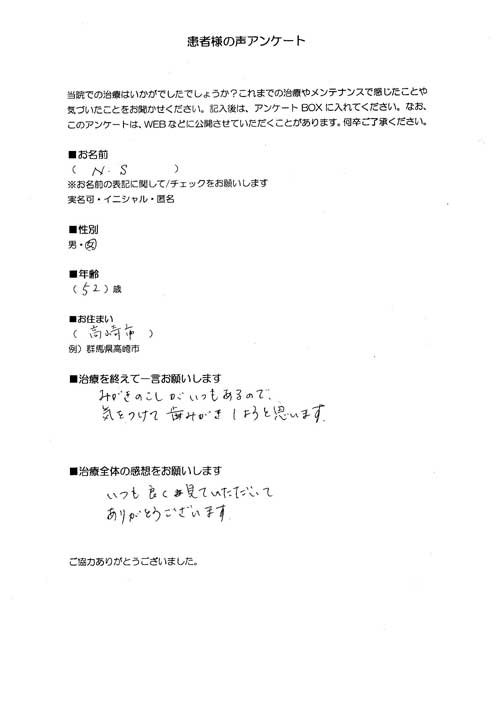 患者様の声アンケート
当院での治療はいかがでしたでしょうか？これまでの治療やメンテナンスで感じたことや
気づいたことをお聞かせください。記入後は、アンケートBOXに入れてください。なお、
このアンケートは、WEBなどに公開させていただくことがあります。何卒ご了承ください。
■お名前
（ N.S ）
※お名前の表記に関して/チェックをお願いします
実名可・イニシャル・匿名
■性別
男・女
■年齢
（52）歳
■お住まい
（ 高崎市 ）
例）群馬県高崎市
■治療を終えて一言お願いします
みがきのこしがいつもあるので、
気をつけて歯みがきしようと思います。
■治療全体の感想をお願いします
いつも良く見ていただいて
ありがとうございます。
ご協力ありがとうございました。